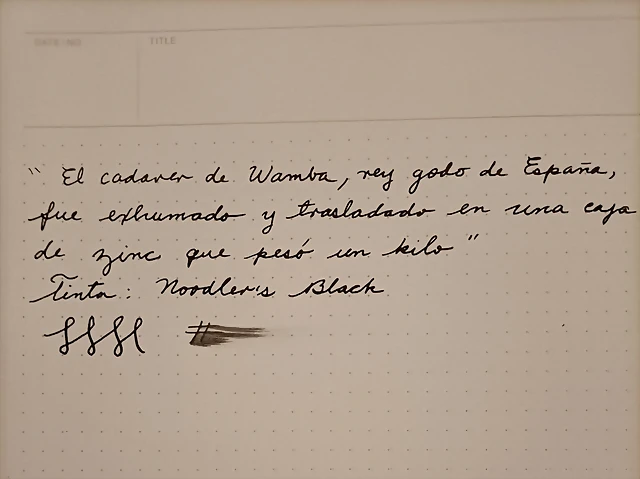 DATE / NO. TITLE
" El cadaver de Wamba, rey godo de España,
fue exhumado y trasladado en una caja
de zinc que pesó un kilo "
Tinta: Noodler's Black